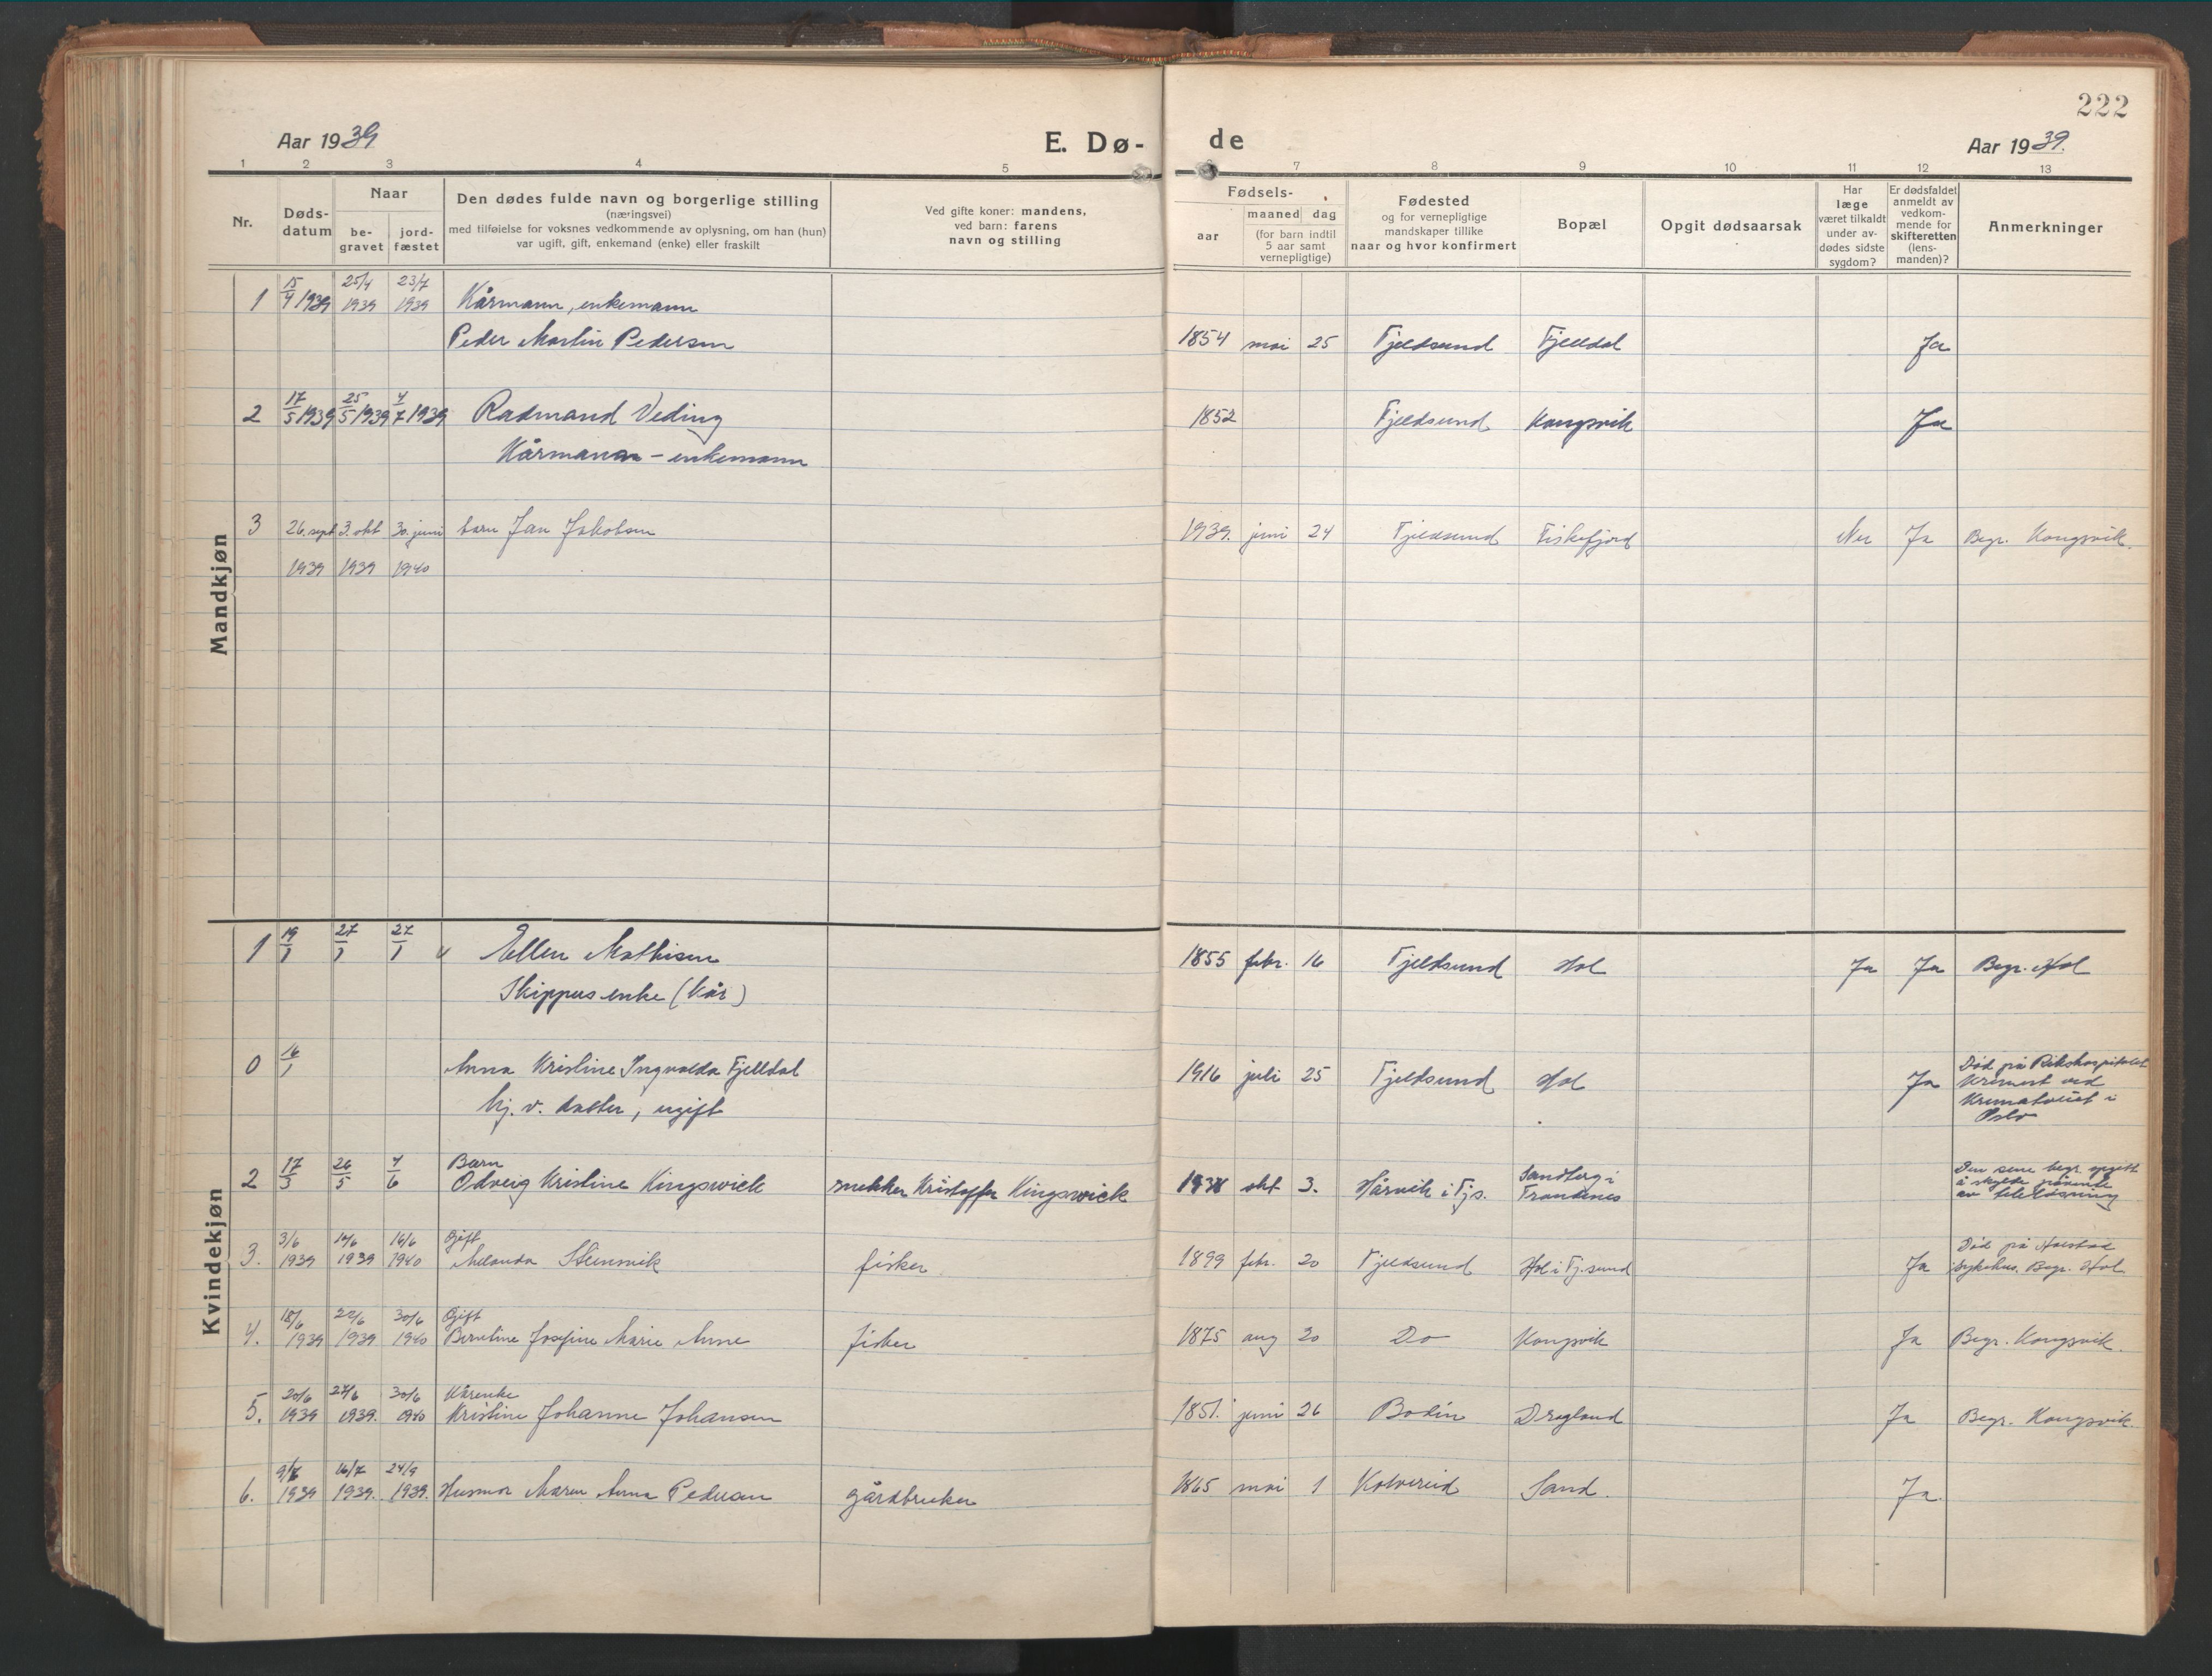 222
Aar 1939
E. Dø-
de
Aar 1939.
1 2 3 4 5 6 7 8 9 10 11 12 13
Nr.
Døds-
datum
Naar
be-
gravet
jord-
fæstet
Den dødes fulde navn og borgerlige stilling
(næringsvei)
med tilføielse for voksnes vedkommende av oplysning, om han (hun)
var ugift, gift, enkemand (enke) eller fraskilt
Ved gifte koner: mandens,
ved barn: farens
navn og stilling
Fødsels-
aar
maaned dag
(for barn indtil
5 aar samt
vernepligtige)
Fødested
og for vernepligtige
mandskaper tillike
naar og hvor konfirmert
Bopæl
Opgit dødsaarsak
Har
læge
været tilkaldt
under av-
dødes sidste
sygdom?
Er dødsfaldet
anmeldt av
vedkom-
mende for
skifteretten
(lens-
manden)?
Anmerkninger
Mandkjøn
1 15/4 1939 25/4 1939 23/7 1939 Kårmann, enkemann
Peder Martin Pedersen 1854 mai 25 Fjeldsund Fjelldal Ja
2 17/5 1939 25/5 1939 4/7 1939 Radmand Veding 1852 Fjeldsund Kongsvik Ja
Kårmann - enkemann
3 26. sept 3. okt 30. juni barn Jan Jakobsen 1939. juni 24 Fjeldsund Fiskefjord Nei Ja Begr. Kongsvik.
1939 1939 1940
Kvindekjøn
1 19/1 27/1 27/1 Ellen Mathisen 1855 febr. 16 Fjeldsund Hol Ja Ja Begr. Hol
Skippers enke (Kår)
0 16/1 Anna Kristine Ingvalda Fjelldal 1916 juli 25 Fjeldsund Hol Ja Død på Rikshospitalet
kremert ved
Krematoriet i
Oslo
hj. v. datter, ugift
2 17/3 26/5 4/6 Barn
Odveig Kristine Kingswick snekker Kristoffer Kingswick 1938 okt 3. Hårvik i Fjs. Sandberg i
Trondenes Den sene begr. opgitt
å skylde
av teleløsning
3. 3/6 1939 1939 16/6 1940 Gift
Melanda Steinsvik fisker 1899 febr. 20 Fjeldsund Hol i Fj.sund Ja Død på Harstad
sykehus. Begr. Hol
4. 18/6 1939 22/6 1939 30/6 1940 Gift
Berntine Josefine Marie Anne fisker 1875 aug 20 Do Kongsvik Ja Begr. Kongsvik.
5. 20/6 1939 27/6 1939. 30/6 1940 Kårenke
Kristine Johanne Johansen 1851. juni 26 Bodin Dragland Ja Begr. Kongsvik.
6. 9/7 1939 16/7 1939. 24/9 1939. Husmor Maren Anna Pedersen gårdbruker 1865 mai 1 Kolvereid Sand. Ja.